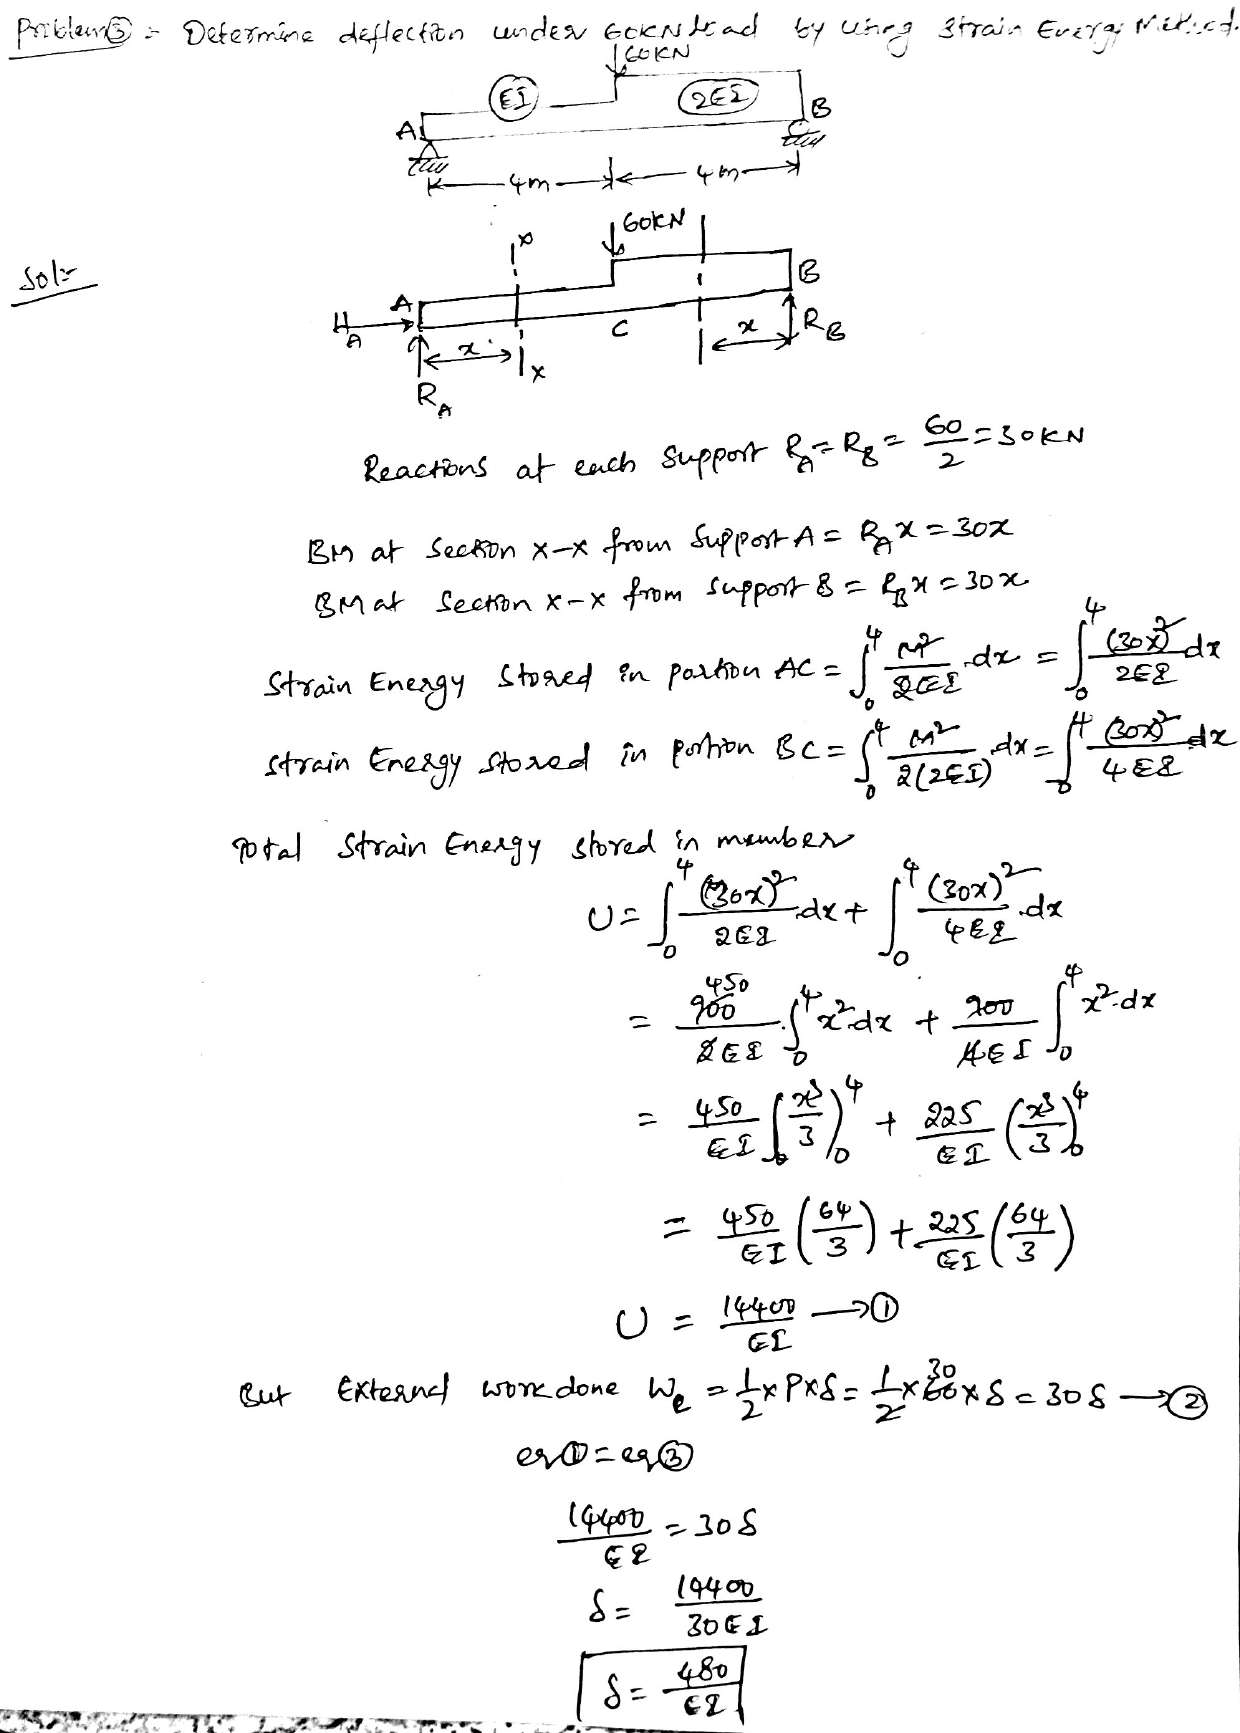 Problem ③ :- Determine deflection under 60KN Load by using Strain Energy Method.
60KN
EI 2EI
A B
4m 4m
Sol:-
x 60KN
A B
H_A C x R_B
x x
R_A
Reactions at each Support R_A = R_B = 60/2 = 30KN
BM at Section x-x from Support A = R_A x = 30x
BM at Section x-x from Support B = R_B x = 30x
Strain Energy Stored in portion AC = ∫₀⁴ M²/2EI .dx = ∫₀⁴ (30x)²/2EI dx
Strain Energy Stored in portion BC = ∫₀⁴ M²/2(2EI) .dx = ∫₀⁴ (30x)²/4EI dx
Total Strain Energy stored in member
U = ∫₀⁴ (30x)²/2EI .dx + ∫₀⁴ (30x)²/4EI .dx
450
= 900/2EI ∫₀⁴ x² dx + 900/4EI ∫₀⁴ x².dx
= 450/EI (x³/3)₀⁴ + 225/EI (x³/3)₀⁴
= 450/EI (64/3) + 225/EI (64/3)
U = 14400/EI → ①
30
But External work done W_e = 1/2 × P×δ = 1/2 × 60 × δ = 30δ → ②
eq ① = eq ③
14400/EI = 30δ
δ = 14400/30EI
δ = 480/EI